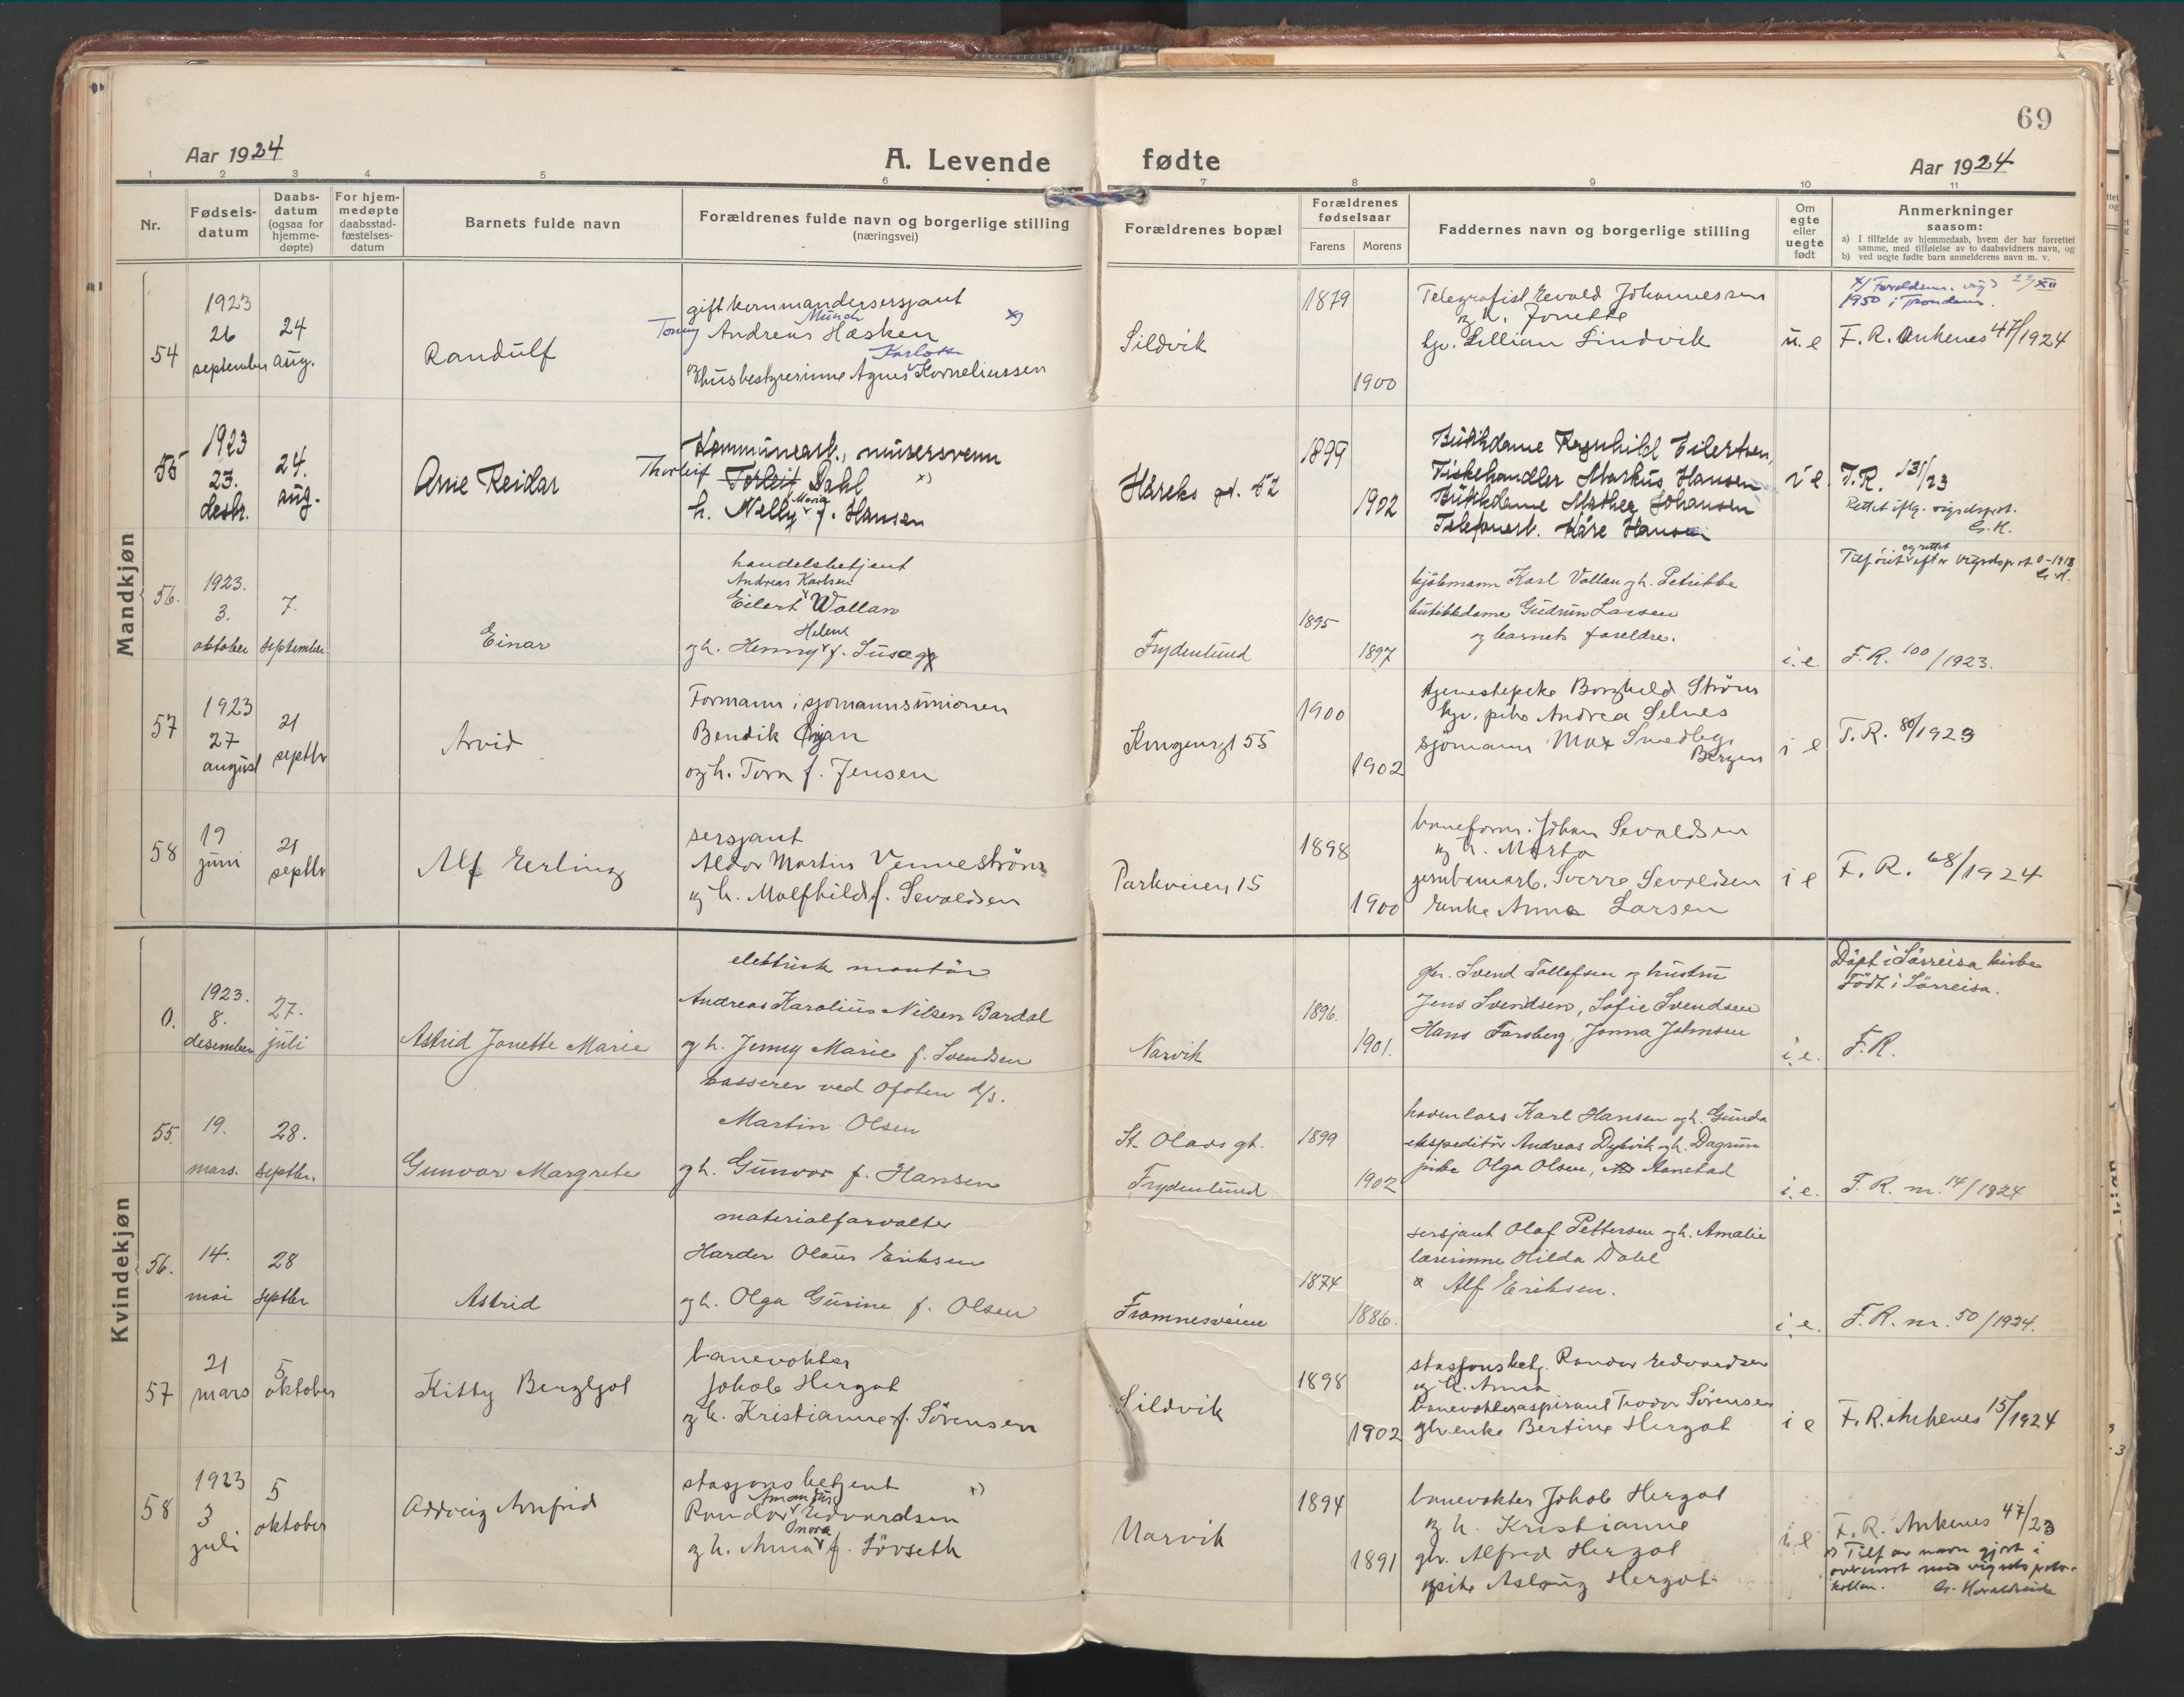 69
Aar 1924
A. Levende fødte
Aar 1924
1 2 3 4 5 6 7 8 9 10 11
Nr.
Fødsels-
datum
Daabs-
datum
(ogsaa for
hjemme-
døpte)
For hjem-
medøpte
daabsstad-
fæstelses-
datum
Barnets fulde navn
Forældrenes fulde navn og borgerlige stilling
(næringsvei)
Forældrenes bopæl
Forældrenes
fødselsaar
Farens Morens
Faddernes navn og borgerlige stilling
Om
egte
eller
uegte
født
Anmerkninger
saasom:
a) I tilfælde av hjemmedaab, hvem der har forrettet
samme, med tilføielse av to daabsvidners navn, og
b) ved uegte fødte barn anmelderens navn m. v.
Mandkjøn
54
1923
26
september
24
aug.
Randulf
gift kommandersersjant
Münch
Tonny Andreas Hasken x)
Karlotte
Husbestyrerinne Agnes Korneliussen
Sildvik
1879
1900
Telegrafist Evald Johannessen
og h. Jonette
hv. Lillian Lindvik
u. e
1950 i Trondenes.
F. R. Ankenes 47/1924
55
1923
23.
desbr.
24.
aug.
Arne Reidar
Kommunearb., murersvenn
Thorleif Torleif Dahl x)
Maria
h. Nelly f. Hansen
Håreks gt. 52
1899
1902
Butikdame Ragnhild Eilertsen,
Fiskehandler Markus Hansen
Butikdame Mathea Johansen
Telefonarb. Kåre Hansen
i e
F.R. 131/23
Rettet iflg. vigselsprot.
G. H.
56.
1923.
3.
oktober
7.
september
Einar
handelsbetjent
Andreas Karlsen
Eilert Wollan
Helene
og h. Henny f. Suseg
Frydenlund
1895
1897
kjøbmann Karl Vollan og h. Petrikke
butikkdame Gudrun Larsen
og barnets foreldre.
i. e.
og rettet
Tilføiet efter vigselsprot 0-1918
G. H.
F. R. 100/1923.
57
1923
27
august
21
septbr
Arvid
Formann i sjømannsunionen
Bendik
og h. Tora f. Jensen
Kongensgt 55
1900
1902
tjenestepike Borghild Strøm
hv. pike Andrea Selnes
sjømann Max
Bergen
i e
F. R. 80/1923
58
19
juni
21
septbr
Alf Erling
sersjant
Aldor Martin Venneström
og h. Malfhild f. Sevaldsen
Parkveien 15
1898
1900
baneform. Johan Sevaldsen
og h. Marta
jernbanearb. Sverre Sevaldsen
enke Anna Larsen
i e
F. R. 68/1924
Kvindekjøn
0.
1923.
8.
desember
27.
juli
Astrid Jonette Marie
elektrisk montör
Andreas Karolius Nilsen Bardal
og h. Jenny Marie f. Svendsen
Narvik
1896.
1901.
gbr. Svend Tollefsen og hustru
Jens Svendsen, Sofie Svendsen
Hans Forsberg, Jonna Johnsen
i. e.
Döpt i Sörreisa kirke
Födt i Sörreisa.
F. R.
55.
19.
mars.
28.
septbr.
Gunvor Margrete
kasserer ved Ofoten d/s.
Martin Olsen
og h. Gunvor f. Hansen
St. Olavs gt.
Frydenlund
1899
1902
havnelos Karl Hansen og h. Gunda
ekspeditör Andreas Dybvik og h. Dagrun
pike Olga Olsen, Aanstad
i. e.
F. R. nr. 14/1924
56.
14.
mai
28
septbr
Astrid
materialforvalter
Harder Olaus Eriksen
og h. Olga Gurine f. Olsen
Framnesveien
1874
1886.
sersjant Olaf Pettersen og h. Amalie
lærerinne Hilda Dahl
& Alf Eriksen.
i. e.
F. R. nr. 50/1924.
57
21
mars
5
oktober
Kitty Bergljot
banevokter
Jakob Hergot
og h. Kristianne f. Sörensen
Sildvik
1898
1902
stasjonsbetj. Randor Edvardsen
og h. Anna
banevokteraspirant Teodor Sörensen
gbr.enke Bertine Hergot
i e
F. R. Ankenes 15/1924
58
1923
3
juli
5
oktober
Oddveig Arnfrid
stasjonsbetjent x)
Randor Edvardsen
Onora
og h. Anna f. Lövseth
Narvik
1894
1891
banevokter Jakob Hergot
og h. Kristianne
gbr. Alfred Hergot
pike Aslaug Hergot
i e
F. R. Ankenes 47/23
x) Tilf av navn gjort i
overensst med vigselsproto-
kollen. G. Haraldseide